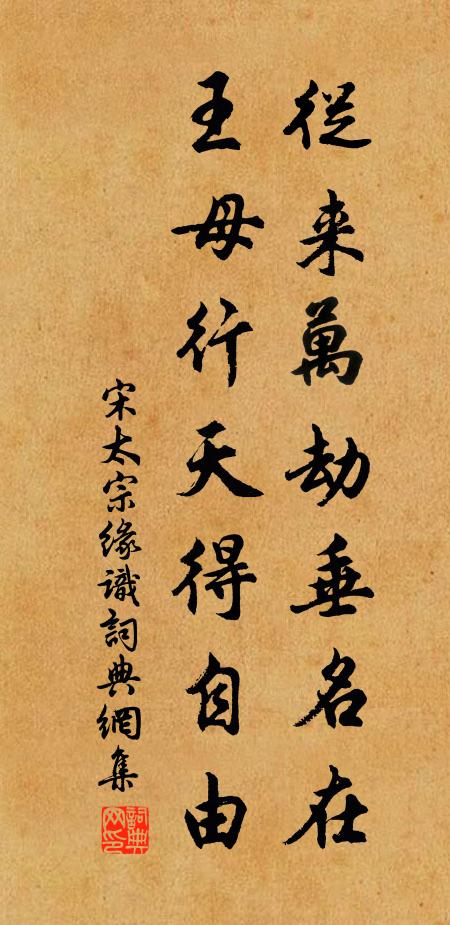 從来萬劫垂名在
王母行天得自由
宋太宗緣識詞典網集
詞典网印